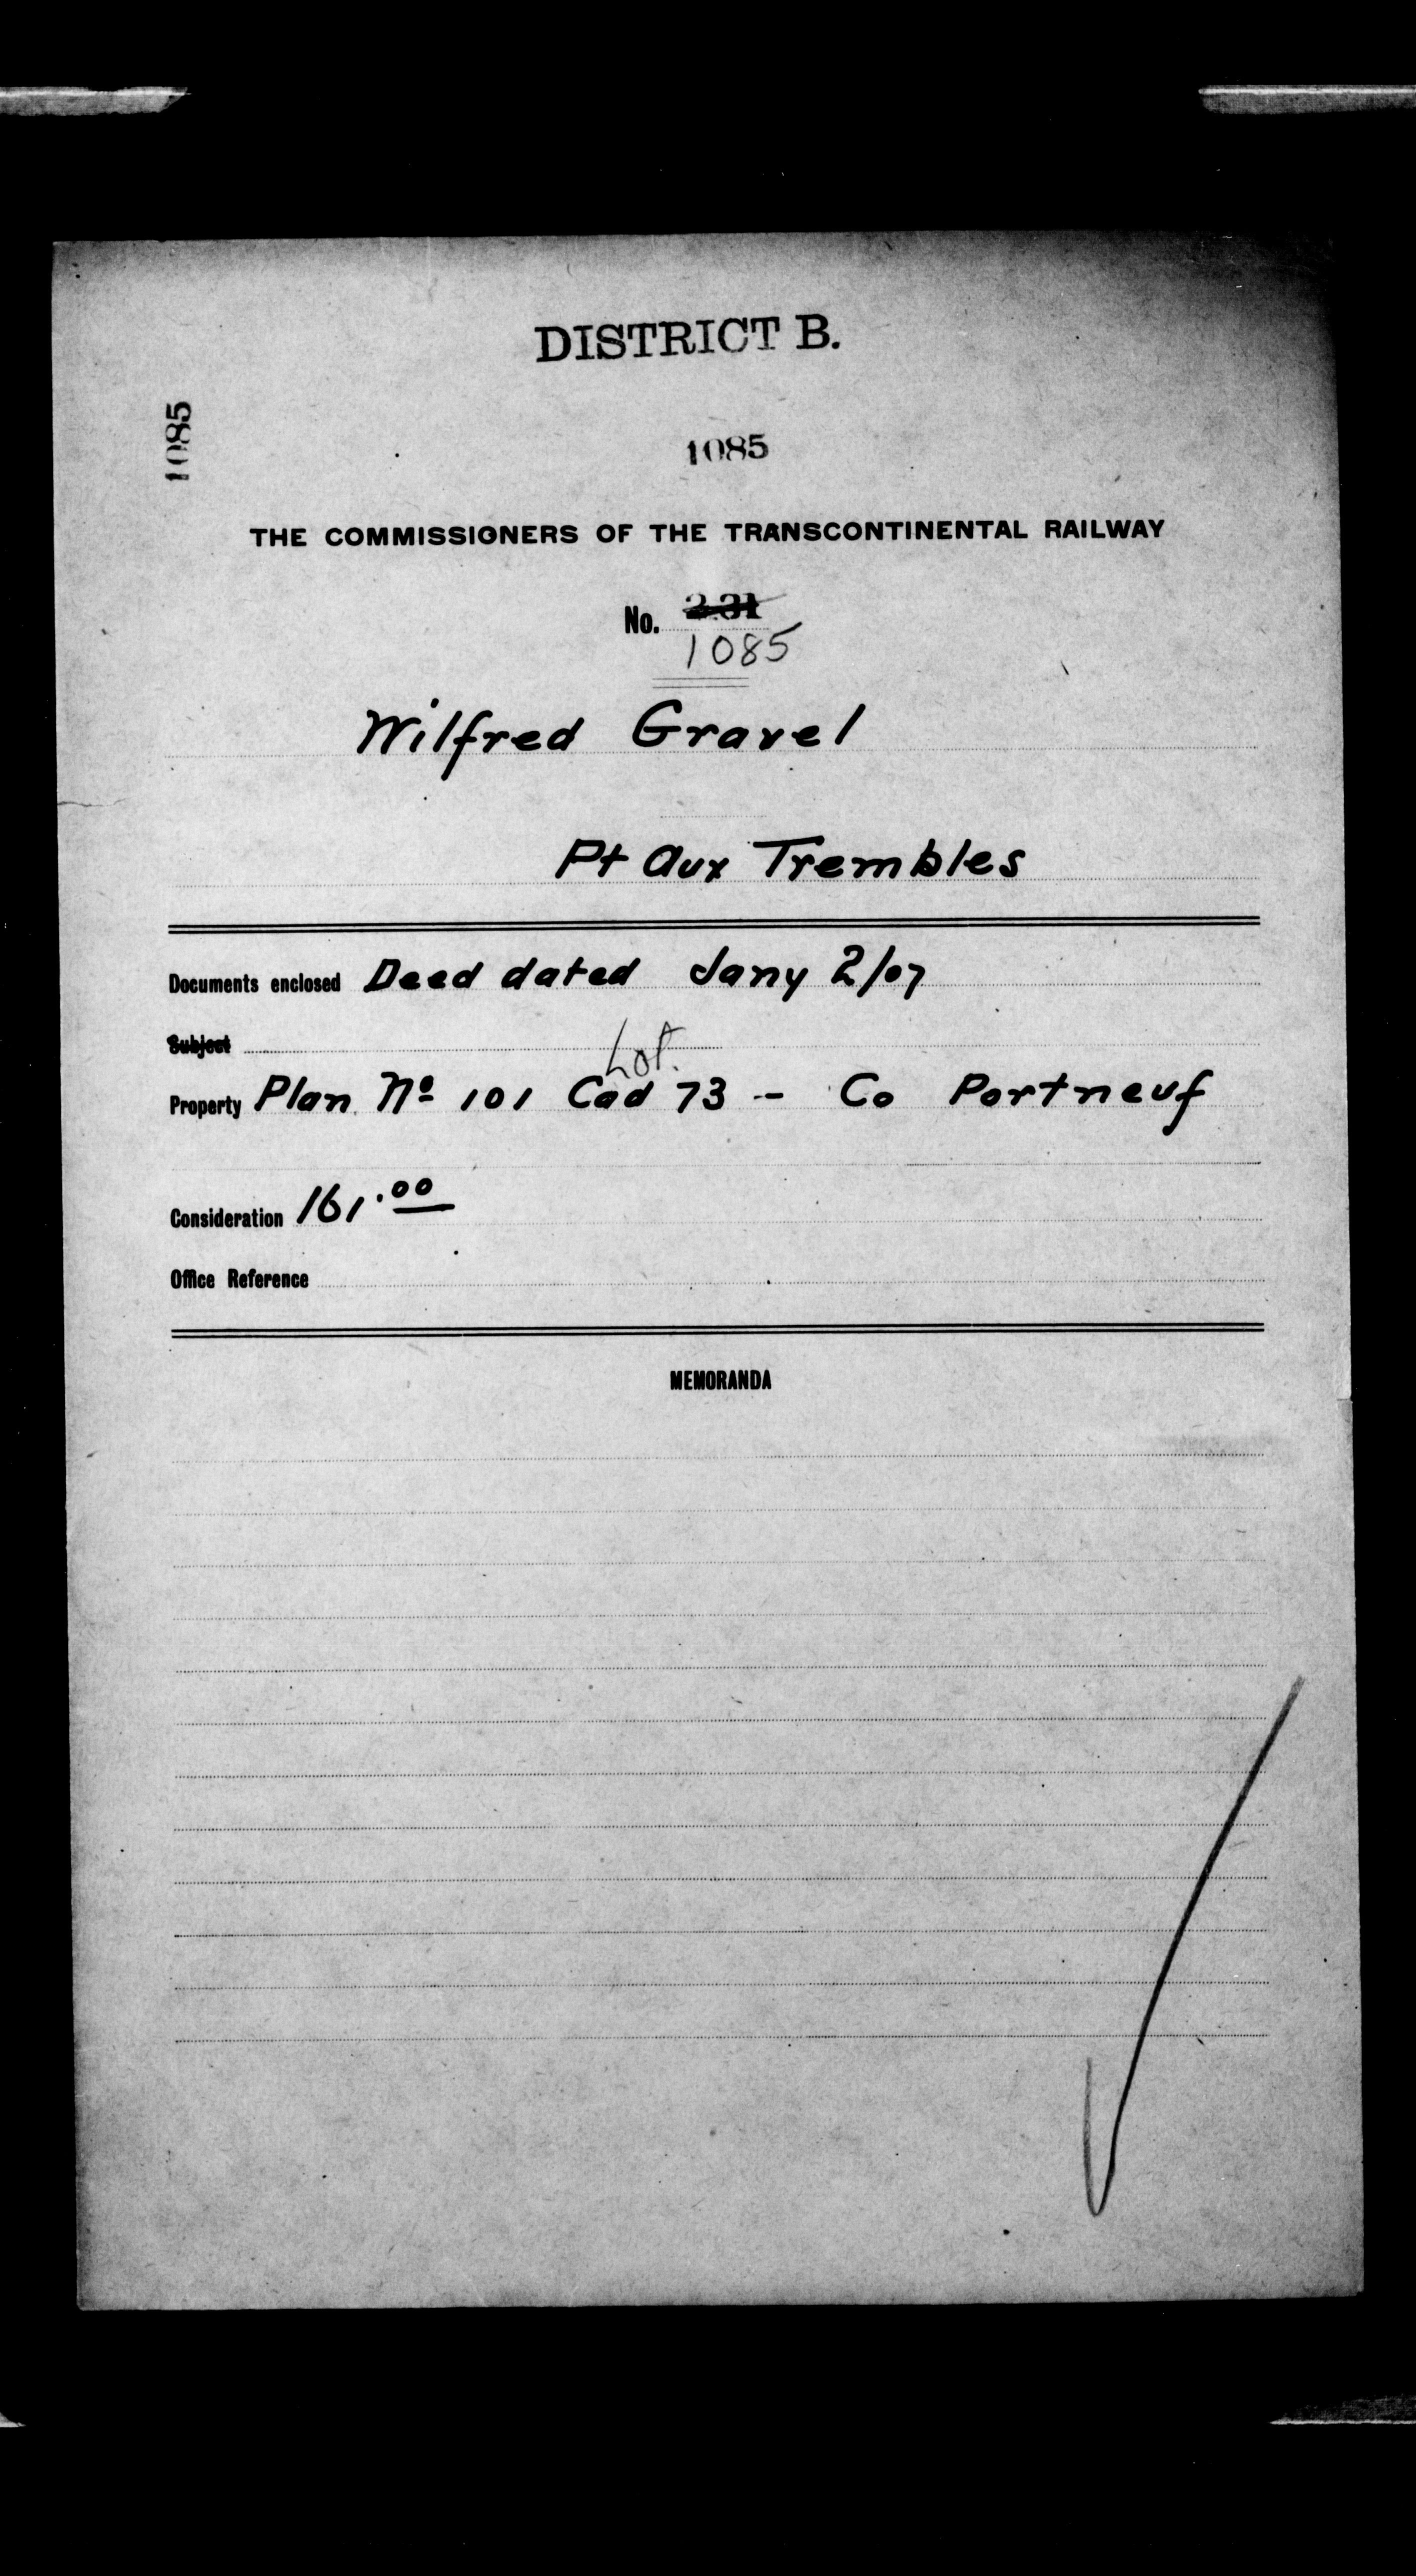 DISTRICT B.
1085
1085
THE COMMISSIONERS OF THE TRANSCONTINENTAL RAILWAY
No. 231
1085
Wilfred Gravel
Pt Aux Trembles
Documents enclosed Deed dated Jany 2/07
Subject
Lot.
Property Plan No 101 Cad 73 -- Co Portneuf
Consideration 161.00
Office Reference
MEMORANDA